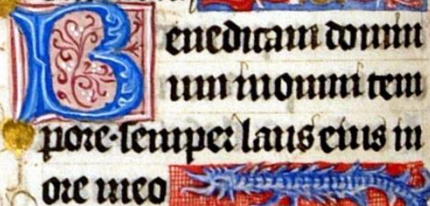 Benedicam domin
um in omni tem
pore·semper laus eius in
ore meo